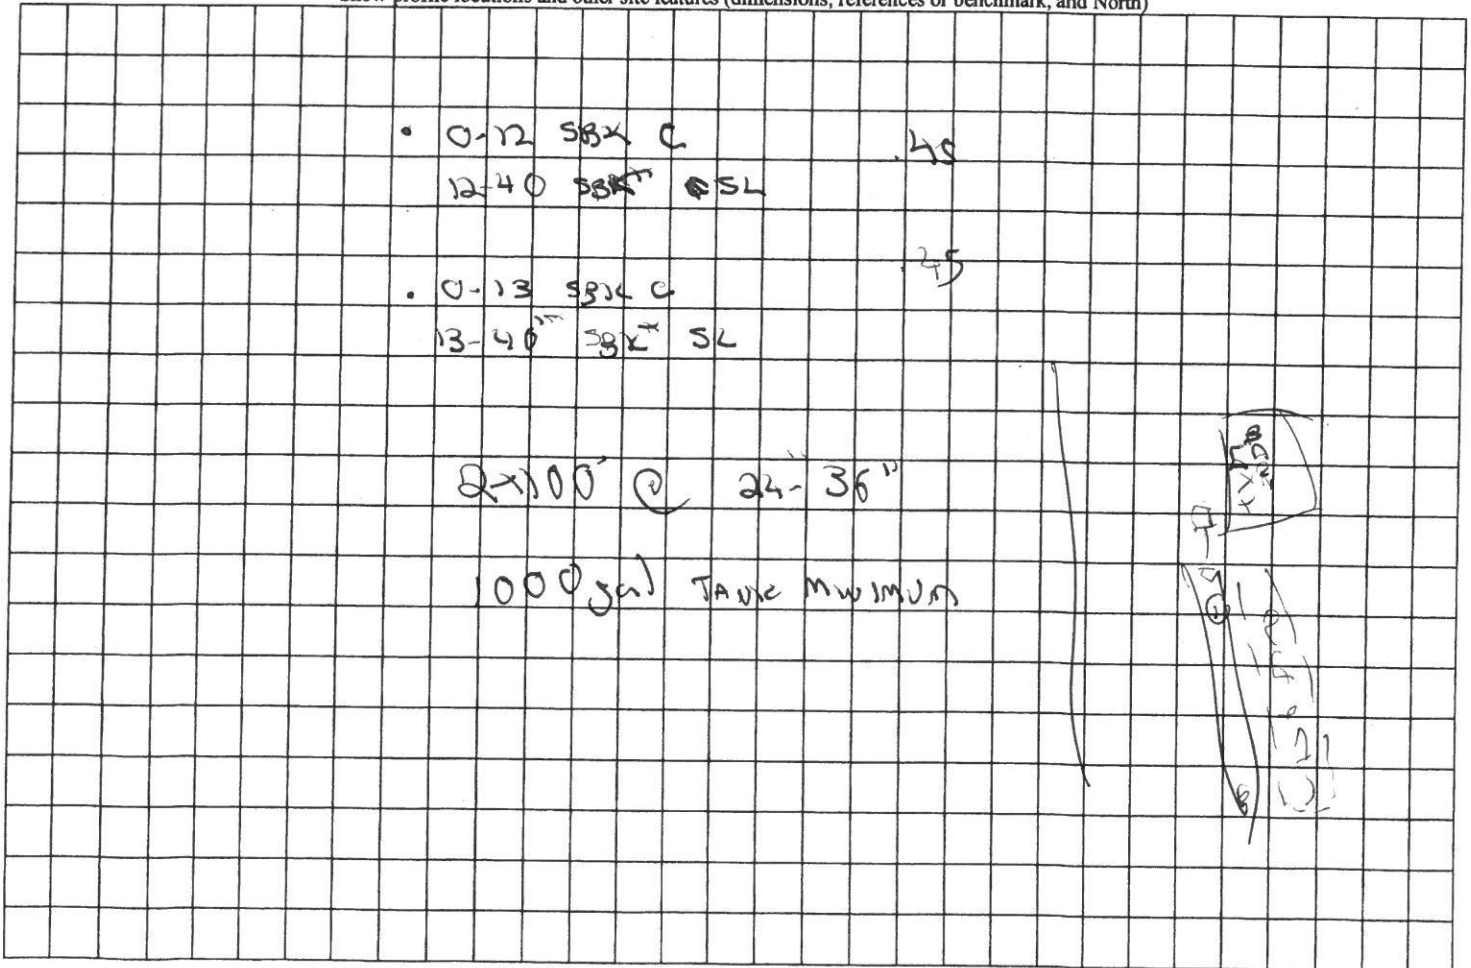 Show profile locations and other site features (dimensions, references or benchmark, and North)
• 0-12 SBK C .45
12-40 SBK SL
.45
• 0-13 SBK C
13-40" SBK SL
2x100' @ 24-36"
1000 gal TANK MINIMUM